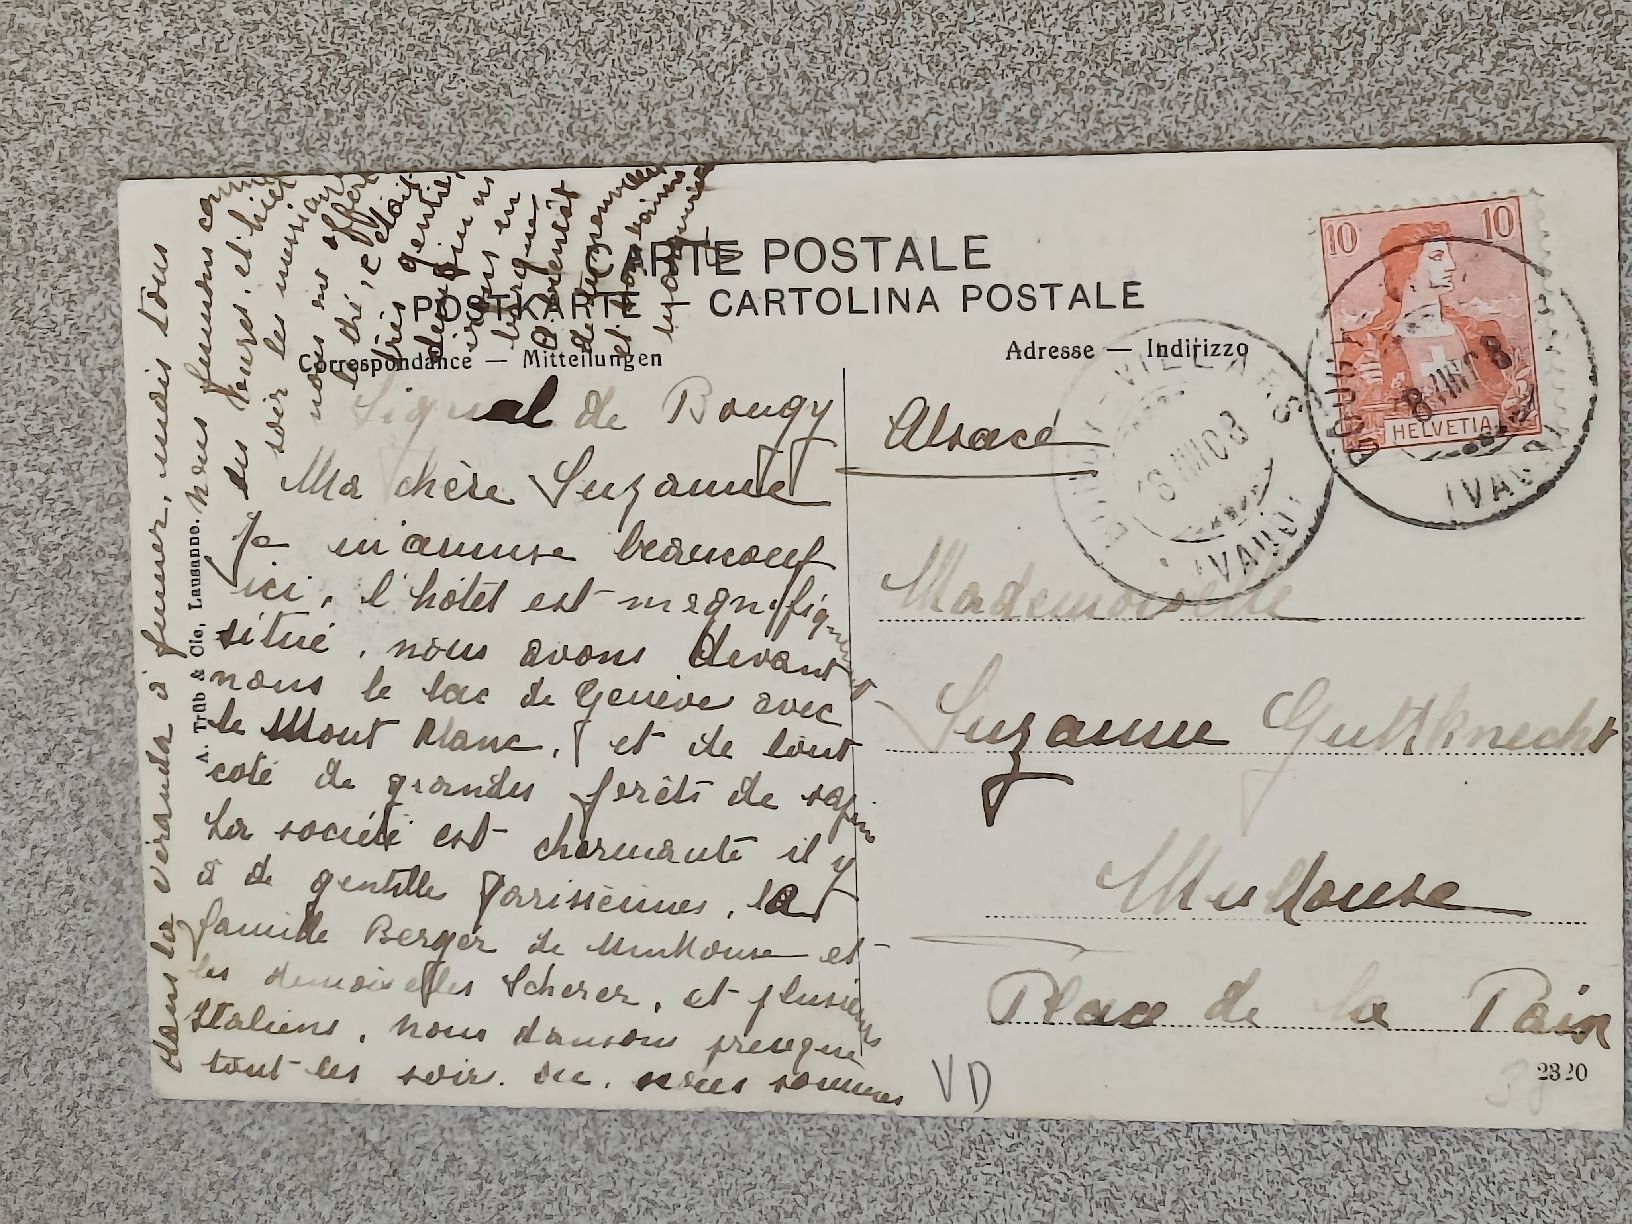 CARTE POSTALE
POSTKARTE — CARTOLINA POSTALE
Correspondance — Mitteilungen
Adresse — Indirizzo
Signal de Bougy
Ma chère Suzanne
Je m'amuse beaucoup
ici, l'hôtel est magnifiquement
situé, nous avons devant
nous le lac de Genève avec
le Mont Blanc, et de tout
coté de grandes forêts de sapin
La société est charmante il y
a de gentille Parisiennes, la
famille Berger de Mulhouse et
les demoiselles Scherer, et plusieurs
Italiens, nous dansons presque
tout les soir. nous sommes
dans la véranda à fumer, mais tous
nous fumons comme
des Tours, et hier
soir les
nous on offert
le thé, c'était
très gentil,
en
barque
A. Trüb & Cie, Lausanne.
Alsace
Mademoiselle
Suzanne Guttknecht
Mulhouse
Place de la Paix
VD
2320
10 10
HELVETIA
BOUGY-VILLARS
8 VIII 08
(VAUD)
BOUGY
8 VIII 08
(VAUD)